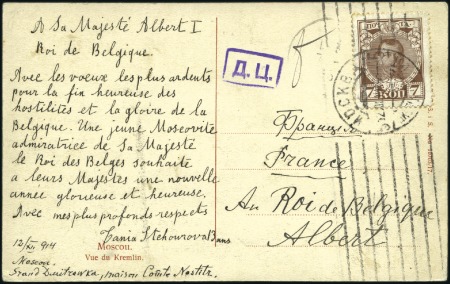 A Sa Majesté Albert I
Roi de Belgique.
Avec les voeux les plus ardents
pour la fin heureuse des
hostilités et la gloire de la
Belgique. Une jeune Moscovite
admiratrice de Sa Majesté
le Roi des Belges souhaite
à leurs Majestés une nouvelle
année glorieuse et heureuse.
Avec mes plus profonds respects
Tania Stchourova 13 ans
12/XII 914
Moscou.
Grand Dmitrowka, maison Comte Nostitz.
Moscou.
Vue du Kremlin.
Д.Ц.
7 КОП 7
МОСКВА
Франція
France
Au Roi de Belgique
Albert